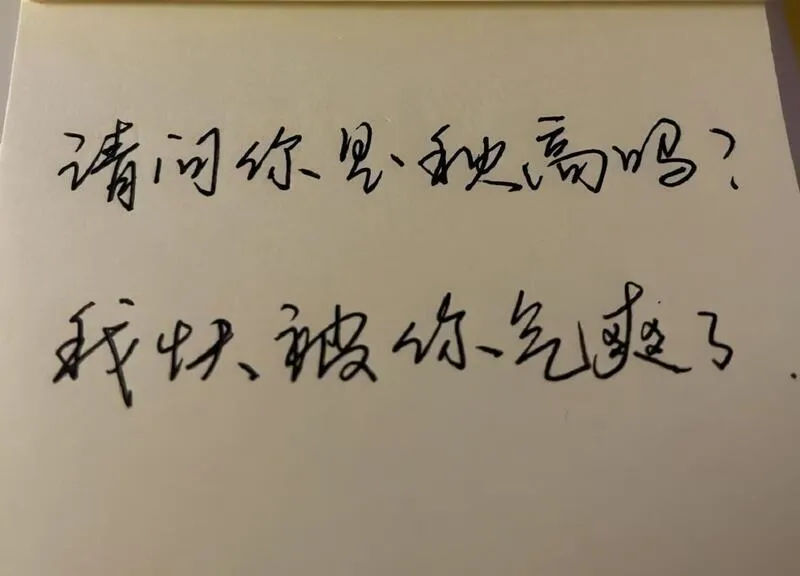 请问你是秋高吗?
我快被你气爽了.